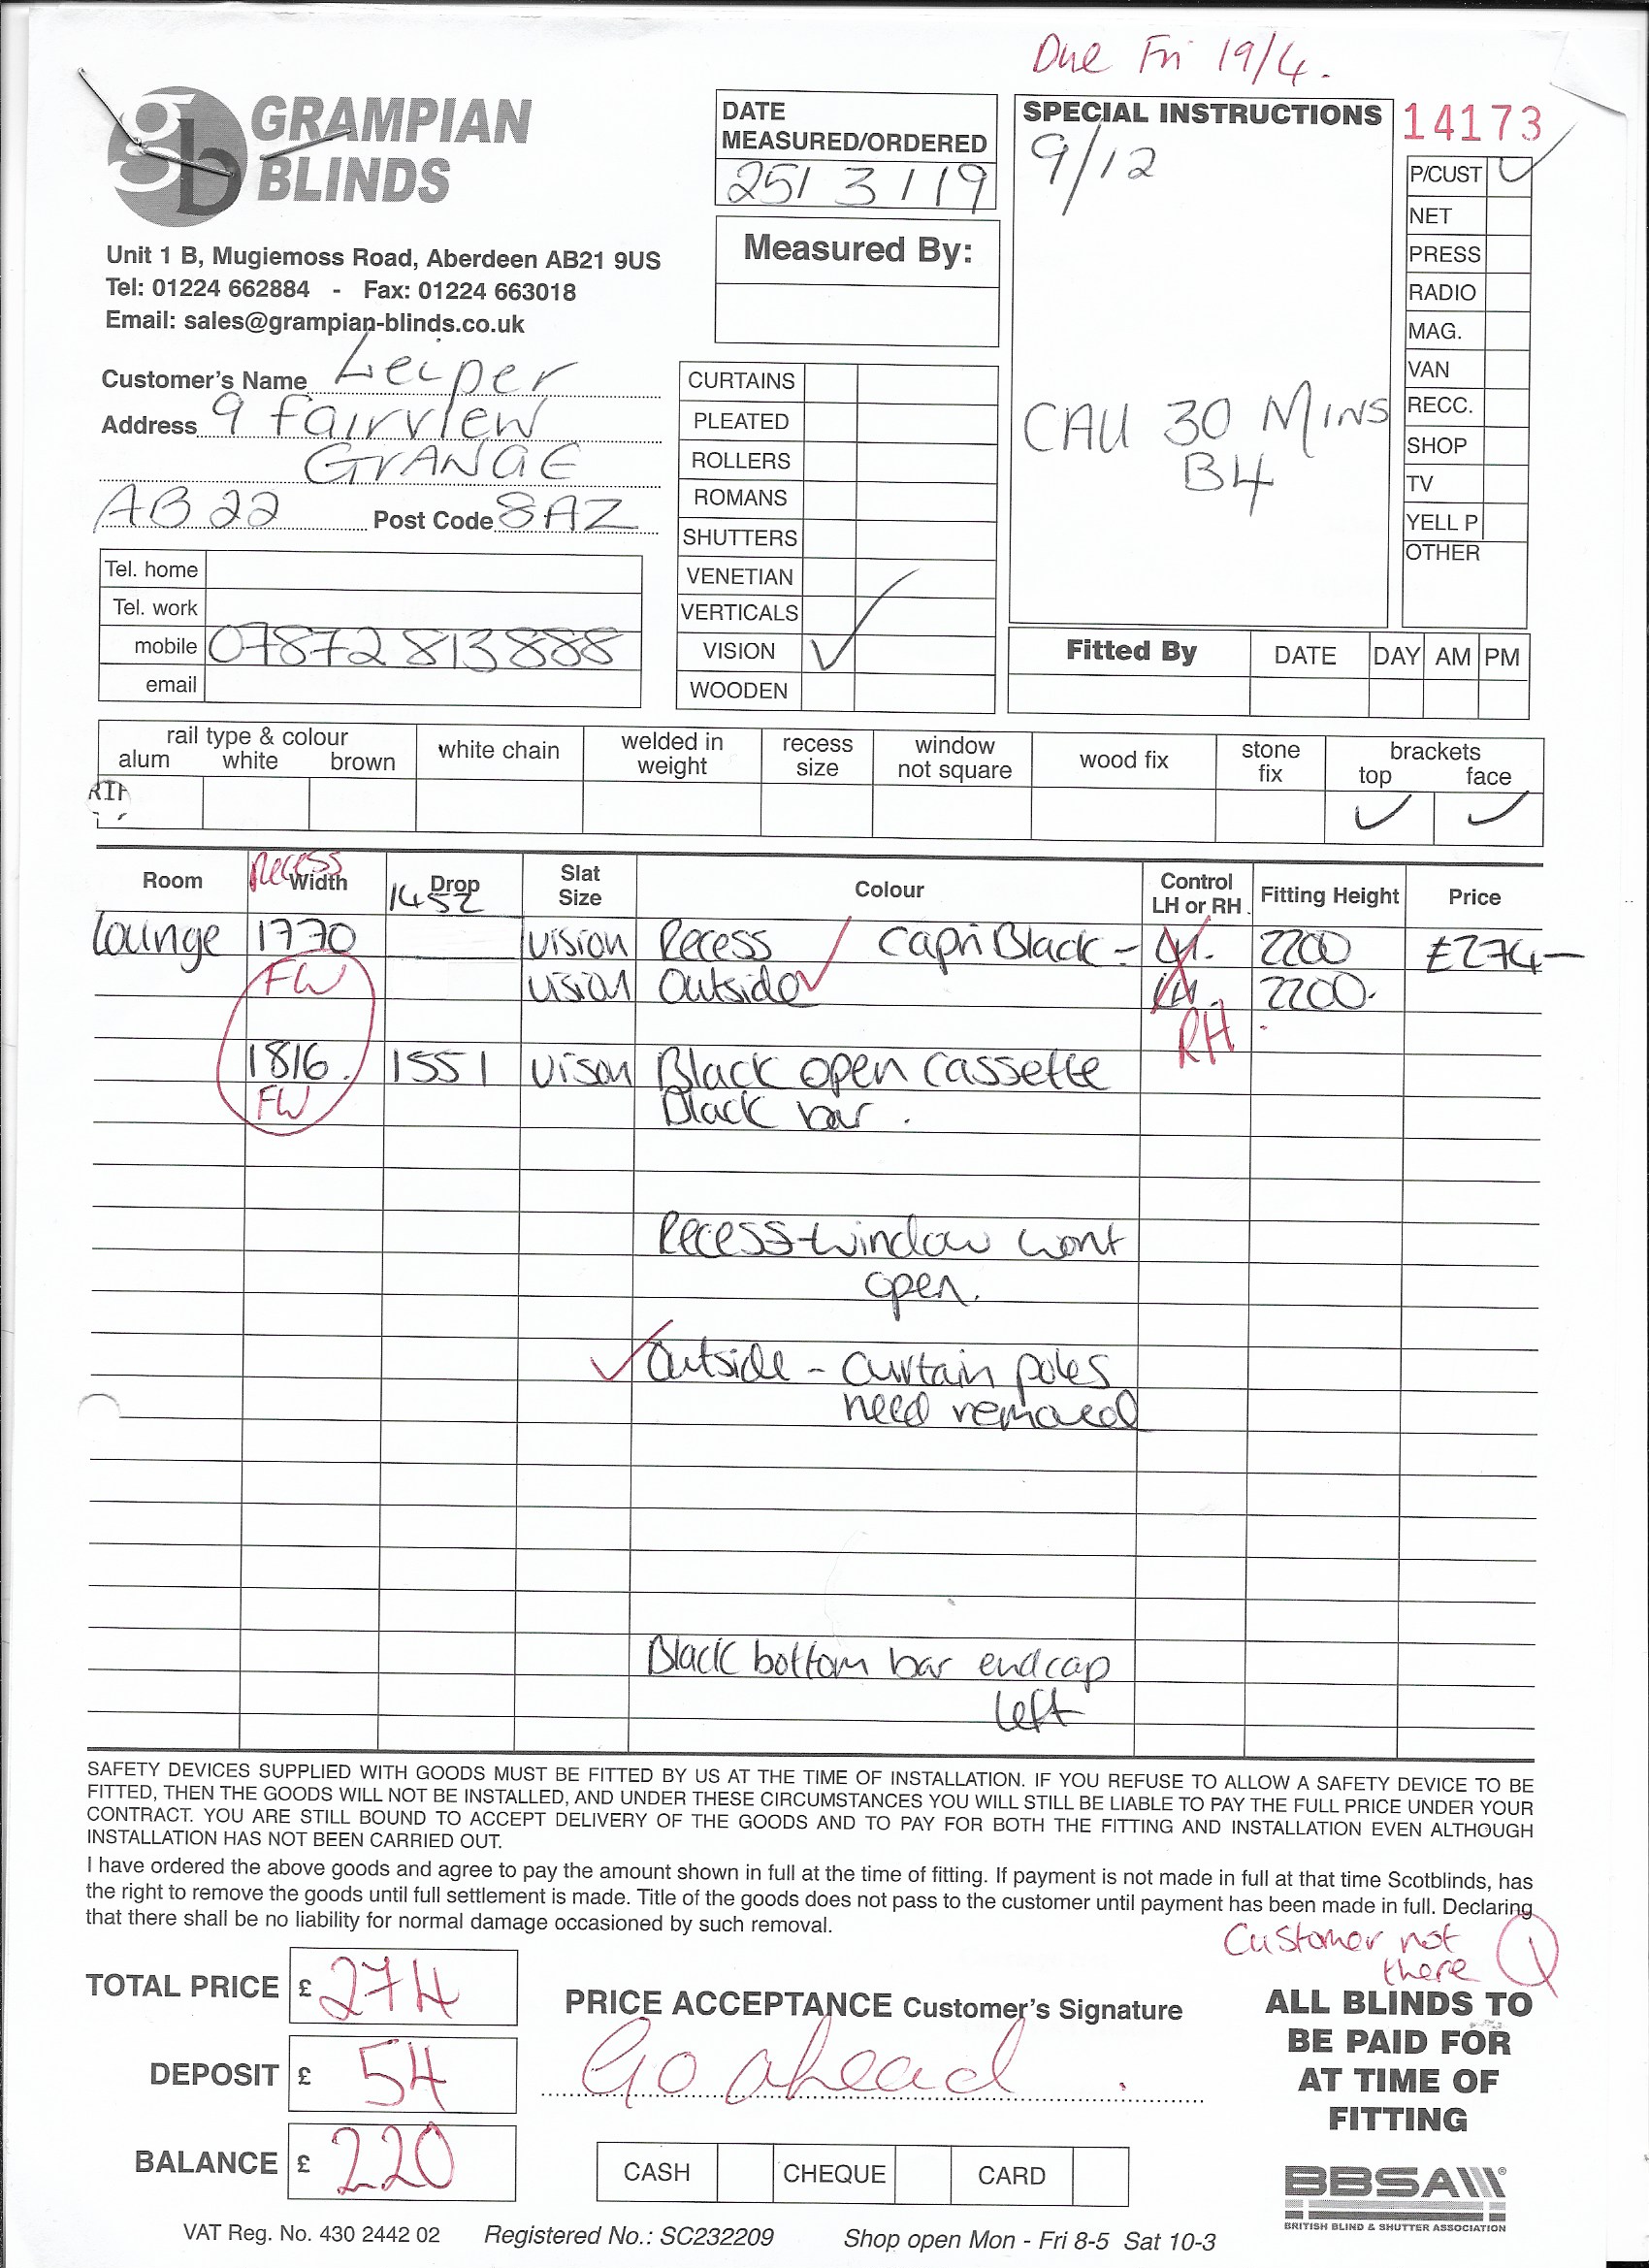 Due Fri 19/4.
GRAMPIAN
BLINDS
Unit 1 B, Mugiemoss Road, Aberdeen AB21 9US
Tel: 01224 662884 - Fax: 01224 663018
Email: sales@grampian-blinds.co.uk
DATE
MEASURED/ORDERED
25/3/19
Measured By:
SPECIAL INSTRUCTIONS
9/12
CALL 30 MINS
B4
14173
P/CUST
NET
PRESS
RADIO
MAG.
VAN
RECC.
SHOP
TV
YELL P
OTHER
Customer's Name Leiper
Address 9 Fairview
GrANGE
AB22 Post Code 8AZ
Tel. home
Tel. work
mobile 07872 813888
email
CURTAINS
PLEATED
ROLLERS
ROMANS
SHUTTERS
VENETIAN
VERTICALS
VISION
WOODEN
Fitted By DATE DAY AM PM
rail type & colour
alum white brown
white chain
welded in
weight
recess
size
window
not square
wood fix
stone
fix
brackets
top face
Room Recess Width Drop Slat Size Colour Control LH or RH Fitting Height Price
1452
Lounge 1770 vision Recess Capri Black - LH. 2200 £274-
FW vision Outside LH. 2200.
RH
1816. 1551 Vison Black open cassette
FW Black bar.
Recess-window wont
open.
Outside - Curtain poles
need removed
Black bottom bar endcap
left
SAFETY DEVICES SUPPLIED WITH GOODS MUST BE FITTED BY US AT THE TIME OF INSTALLATION. IF YOU REFUSE TO ALLOW A SAFETY DEVICE TO BE
FITTED, THEN THE GOODS WILL NOT BE INSTALLED, AND UNDER THESE CIRCUMSTANCES YOU WILL STILL BE LIABLE TO PAY THE FULL PRICE UNDER YOUR
CONTRACT. YOU ARE STILL BOUND TO ACCEPT DELIVERY OF THE GOODS AND TO PAY FOR BOTH THE FITTING AND INSTALLATION EVEN ALTHOUGH
INSTALLATION HAS NOT BEEN CARRIED OUT.
I have ordered the above goods and agree to pay the amount shown in full at the time of fitting. If payment is not made in full at that time Scotblinds, has
the right to remove the goods until full settlement is made. Title of the goods does not pass to the customer until payment has been made in full. Declaring
that there shall be no liability for normal damage occasioned by such removal.
Customer not
there
TOTAL PRICE £ 274
DEPOSIT £ 54
BALANCE £ 220
PRICE ACCEPTANCE Customer's Signature
Go ahead
CASH CHEQUE CARD
ALL BLINDS TO
BE PAID FOR
AT TIME OF
FITTING
BBSA
BRITISH BLIND & SHUTTER ASSOCIATION
VAT Reg. No. 430 2442 02 Registered No.: SC232209 Shop open Mon - Fri 8-5 Sat 10-3